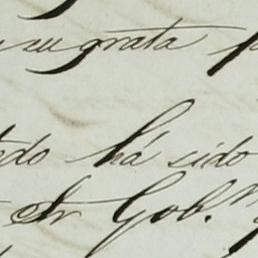 su grata
do há sido
Sr Gob.